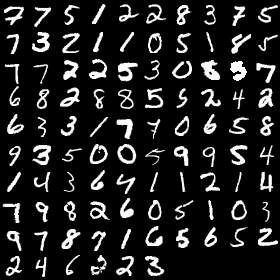 7 7 5 1 2 2 8 3 7 5
7 3 2 1 1 0 5 1 8 5
7 7 2 2 5 3 0 6 9 7
6 8 2 8 8 5 5 2 4 2
6 3 3 1 7 7 0 6 5 8
9 3 5 0 0 5 9 9 5 4
1 4 3 6 4 1 1 2 1 4
7 9 8 2 6 0 5 1 0 3
9 7 8 7 1 6 5 6 5 2
2 4 6 2 2 3